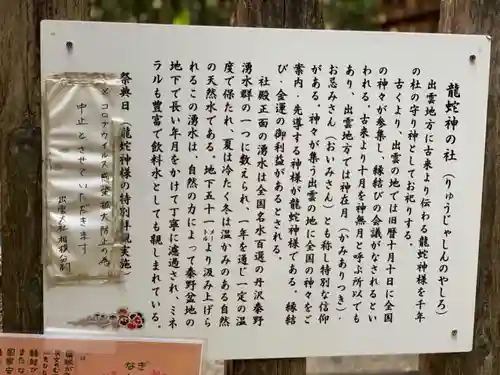 龍蛇神の社（りゅうじゃしんのやしろ）
出雲地方に古来より伝わる龍蛇神様を千年
の社の守り神としてお祀りする。
古くより、出雲の地では旧暦十月十日に全国
の神々が参集し、縁結びの会議がなされるとい
われる。古来より十月を神無月と呼ぶ所以でも
あり、出雲地方では神在月（かみありつき）・
お忌みさん（おいみさん）とも称し特別な信仰
がある。神々が集う出雲の地に全国の神々をご
案内・先導する神様が龍蛇神様である。縁結
び・金運の御利益があるとされる。
社殿正面の湧水は全国名水百選の丹沢秦野
湧水群の一つに数えられ、一年を通じ一定の温
度で保たれ、夏は冷たく冬は温かみのある自然
の天然水である。地下五十一㍍より汲み上げら
れるこの湧水は、自然の力によって秦野盆地の
地下で長い年月をかけて丁寧に濾過され、ミネ
ラルも豊富で飲料水としても親しまれている。
祭典日（龍蛇神様の特別拝観実施
※コロナウイルス感染拡大防止の為
中止とさせていただきます
出雲大社相模分祠